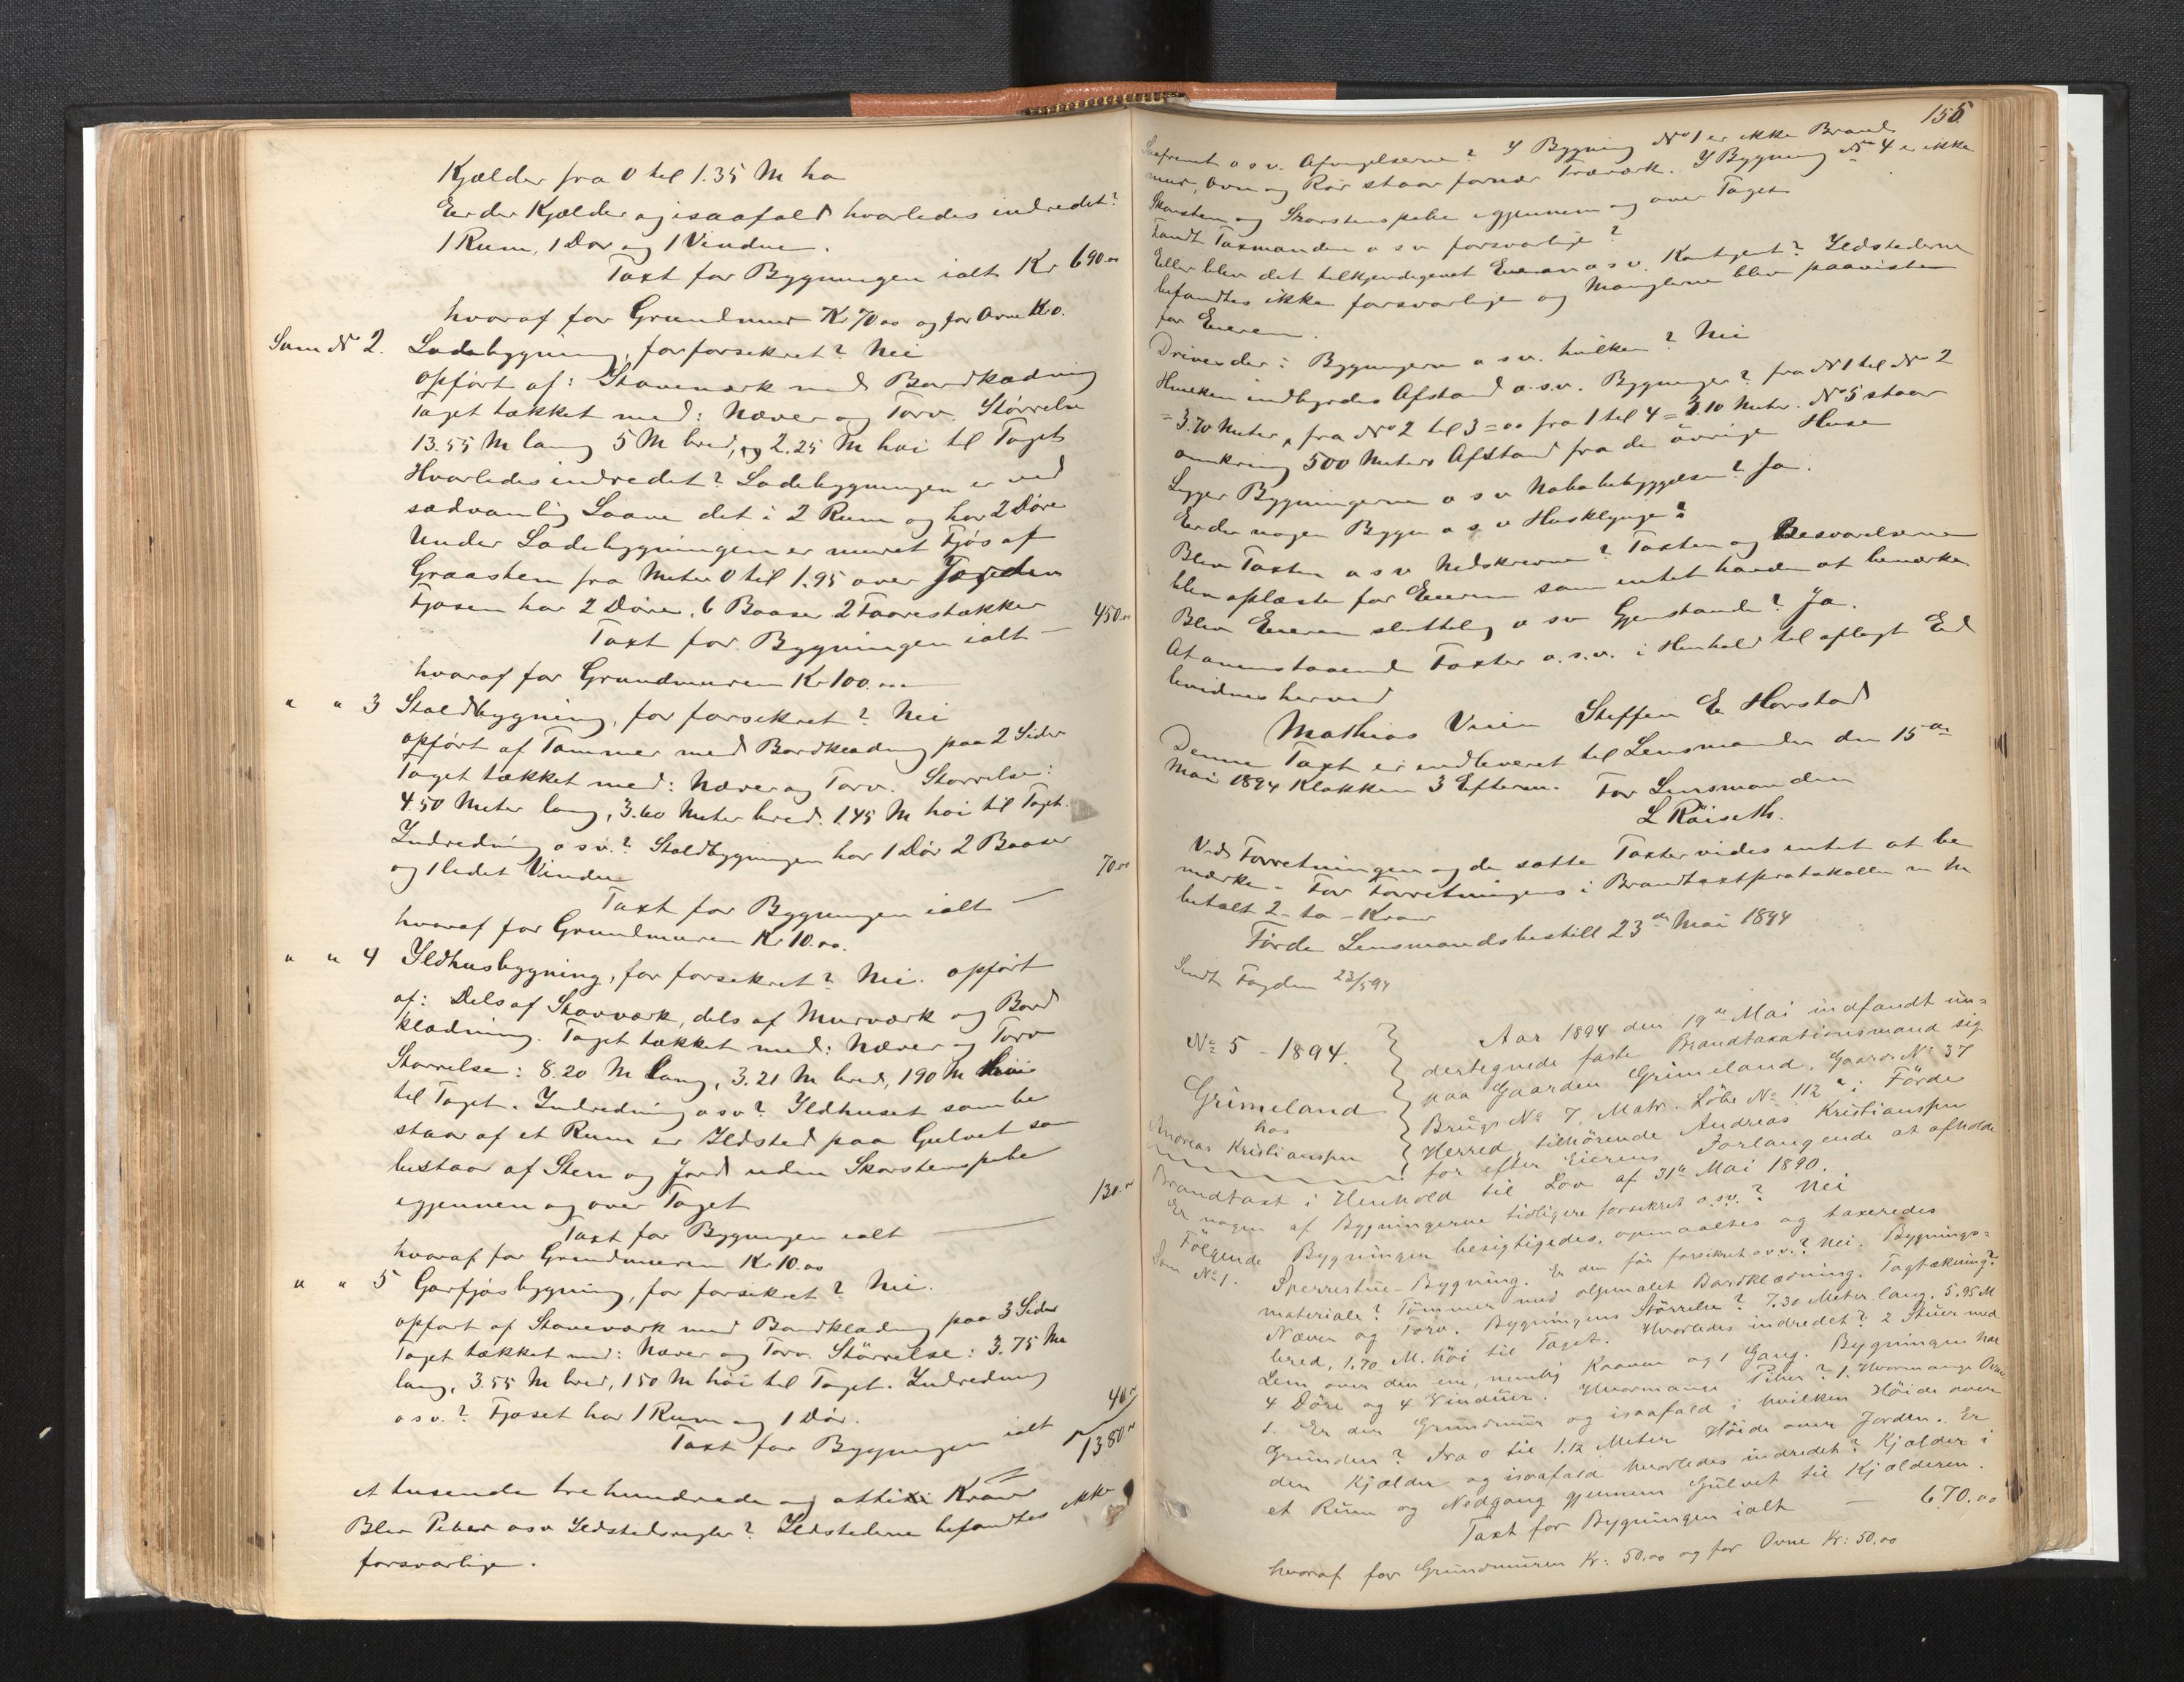 Kjælder fra 0 til 1.35 M ho
Er der Kjælder og isaafald hvorledes indredet?
1 Rum, 1 Dør og 1 Vindue.
Taxt for Bygningen ialt Kr 690.00
hvoraf for Grundmur Kr 70.00 og for Ovne Kr 0.
Som No 2. Ladebygning, før forsekret? Nei
opført af: Stavværk med Bordklædning
Taget tækket med: Næver og Torv. Størrelse
13.55 M lang 5 M bred, og 2.25 M høi til Taget
Hvorledes indredet? Ladebygningen er ved
sædvanlig Laave delt i 2 Rum og har 2 Døre
Under Ladebygningen er muret Fjøs af
Graasten fra Meter 0 til 1.95 over Jorden
Fjøsen har 2 Døre, 6 Baaser 2 Faarestækker
Taxt for Bygningen ialt — 450.00
hvoraf for Grundmuren Kr 100.00
" " 3 Staldbygning, før forsekret? Nei
opført af Tømmer med Bordklædning paa 2 Sider
Taget tækket med: Næver og Torv. Størrelse:
4.50 Meter lang, 3.60 Meter bred. 1.45 M høi til Taget.
Indredning o s v.? Staldbygningen har 1 Dør 2 Baaser
og 1 ledet Vindue
Taxt for Bygningen ialt — 70.00
hvoraf for Grundmuren Kr 10.00.
" " 4 Ildhusbygning, før forsekret? Nei. opført
af: Dels af Stavværk, dels af Murværk og Bord
klædning. Taget tækket med: Næver og Torv
Størrelse: 8.20 M lang, 3.21 M bred, 190 M høi
til Taget. Indredning o s v? Ildhuset som be
staar af et Rum er Ildsted paa Gulvet som
bestaar af Sten og Jord uden Skorstenspibe
igjennem og over Taget
Taxt for Bygningen ialt — 130.00
hvoraf for Grundmuren Kr 10.00
" " 5 Garfjøsbygning, før forsekret? Nei.
opført af Staveværk med Bordklædning paa 3 Sider
Taget tækket med: Næver og Torv. Størrelse: 3.75 M
lang, 3.55 M bred, 150 M høi til Taget. Indredning
o s v.? Fjøset har 1 Rum og 1 Dør.
Taxt for Bygningen ialt 40.00
1380.00
et tusende tre hundrede og otti Kroner
Blev Piber o s v Ildstedsregler? Ildstederne befandtes ikke
forsvarlige.
155
Saafremt o s v. Afvigelserne? I Bygning No 1 er ikke Brand
mur, Ovn og Rør staar fornær Træværk. I Bygning No 4 er ikke
Skorsten og Skorstenspibe igjennem og over Taget
Fandt Taxmænden o s v forsvarlige?
Eller blev det tilkjendegivet Eieren o s v. Kontigent? Ildstederne
befandtes ikke forsvarlige og Manglerne blev paaviste
for Eieren.
Drives der i Bygningerne o s v. hvilken? Nei
Hvilken indbyrdes Afstand o.s.v. Bygninger? fra No 1 til No 2
= 3.70 Meter, fra No 2 til 3 = 00 fra 1 til 4 = 3.10 Meter. No 5 staar
omkring 500 Meters Afstand fra de øvrige Huse
Ligger Bygningerne o s v Nabobebyggelse? Ja.
Er der nogen Bygn o s v Husklynge?
Blev Taxten o s v Nedskrevne? Taxten og Besvarelserne
blev oplæste for Eieren som intet havde at bemærke
Blev Eieren sluttelig o s v Gjenstande? Ja.
At ovenstaaende Taxter o.s.v. i Henhold til aflagt Ed
bevidnes herved
Mathias Vien Steffen E Horstad
Denne Taxt er indleveret til Lensmanden den 15de
Mai 1894 Klokken 3 Efterm. For Lensmanden
L Röiseth.
Ved Forretningen og de satte Taxter vides intet at be
mærke. For Forretningens i Brandtaxtprotokollen m m
betalt 2 - to - Kroner
Førde Lensmandsbestill 23de Mai 1894
Sendt Fogden 23/5 94
No 5 - 1894.
Grimeland
hos
Andreas Kristianssen
Aar 1894 den 19de Mai indfandt un=
dertegnede faste Brandtaxationsmænd sig
paa Gaarden Grimeland, Gaards No 37
Brugs No 7, Matr. Løbe No 112 a i Førde
Herred, tilhörende Andreas Kristianssen
for efter Eierens Forlangende at afholde
Brandtaxt i Henhold til Lov af 31te Mai 1890.
Er nogen af Bygningerne tidligere forsekret o.s.v.? Nei
Følgende Bygningen besigtigedes, opmaaltes og taxeredes
Som No 1. Sperrestue-Bygning. Er den før forsikret o.s.v.? Nei. Bygnings=
materiale? Tømmer med oljemalet Bordklædning. Tagtækning?
Næver og Torv. Bygningens Størrelse? 7.30 Meter lang, 5.95 M
bred, 1.70 M. høi til Taget. Hvorledes indredet? 2 Stuer med
Lem over den ene, nemlig Kaaven og 1 Gang. Bygningen har
4 Döre og 4 Vinduer. Hvormange Piber? 1. Hvormange Ovne
1. Er der Grundmur og isaafald i hvilken Høide over
Grunden? Fra 0 til 1.12 Meter Høide over Jorden. Er
der Kjælder og isaafald hvorledes indredet? Kjælder i
et Rum og Nedgang gjennem Gulvet til Kjælderen.
Taxt for Bygningen ialt — 670.00
hvoraf for Grundmuren Kr: 50.00 og for Ovne Kr: 50.00